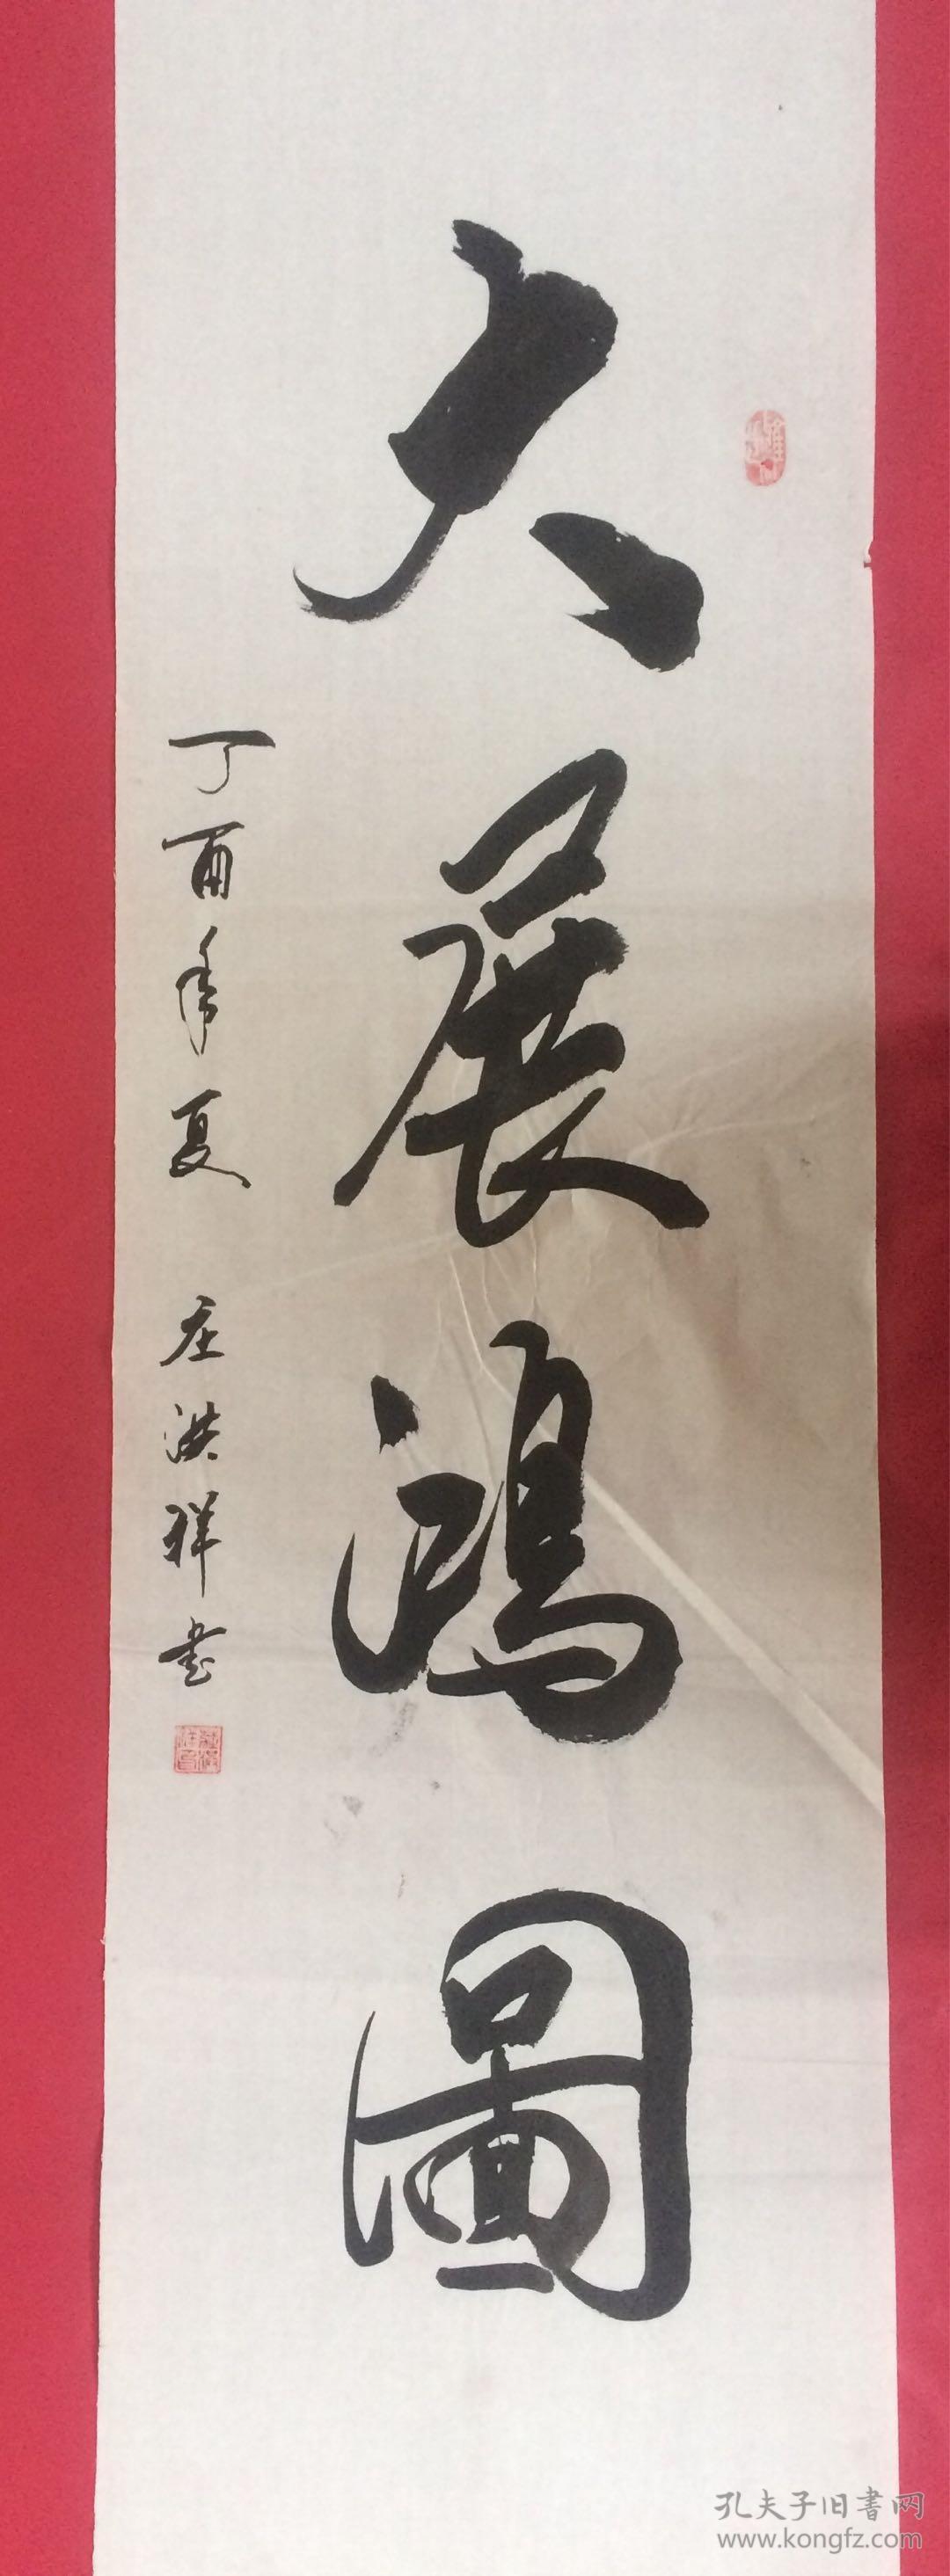 大展鴻圖
丁酉年夏 庄洪祥书
孔夫子旧書网
www.kongfz.com